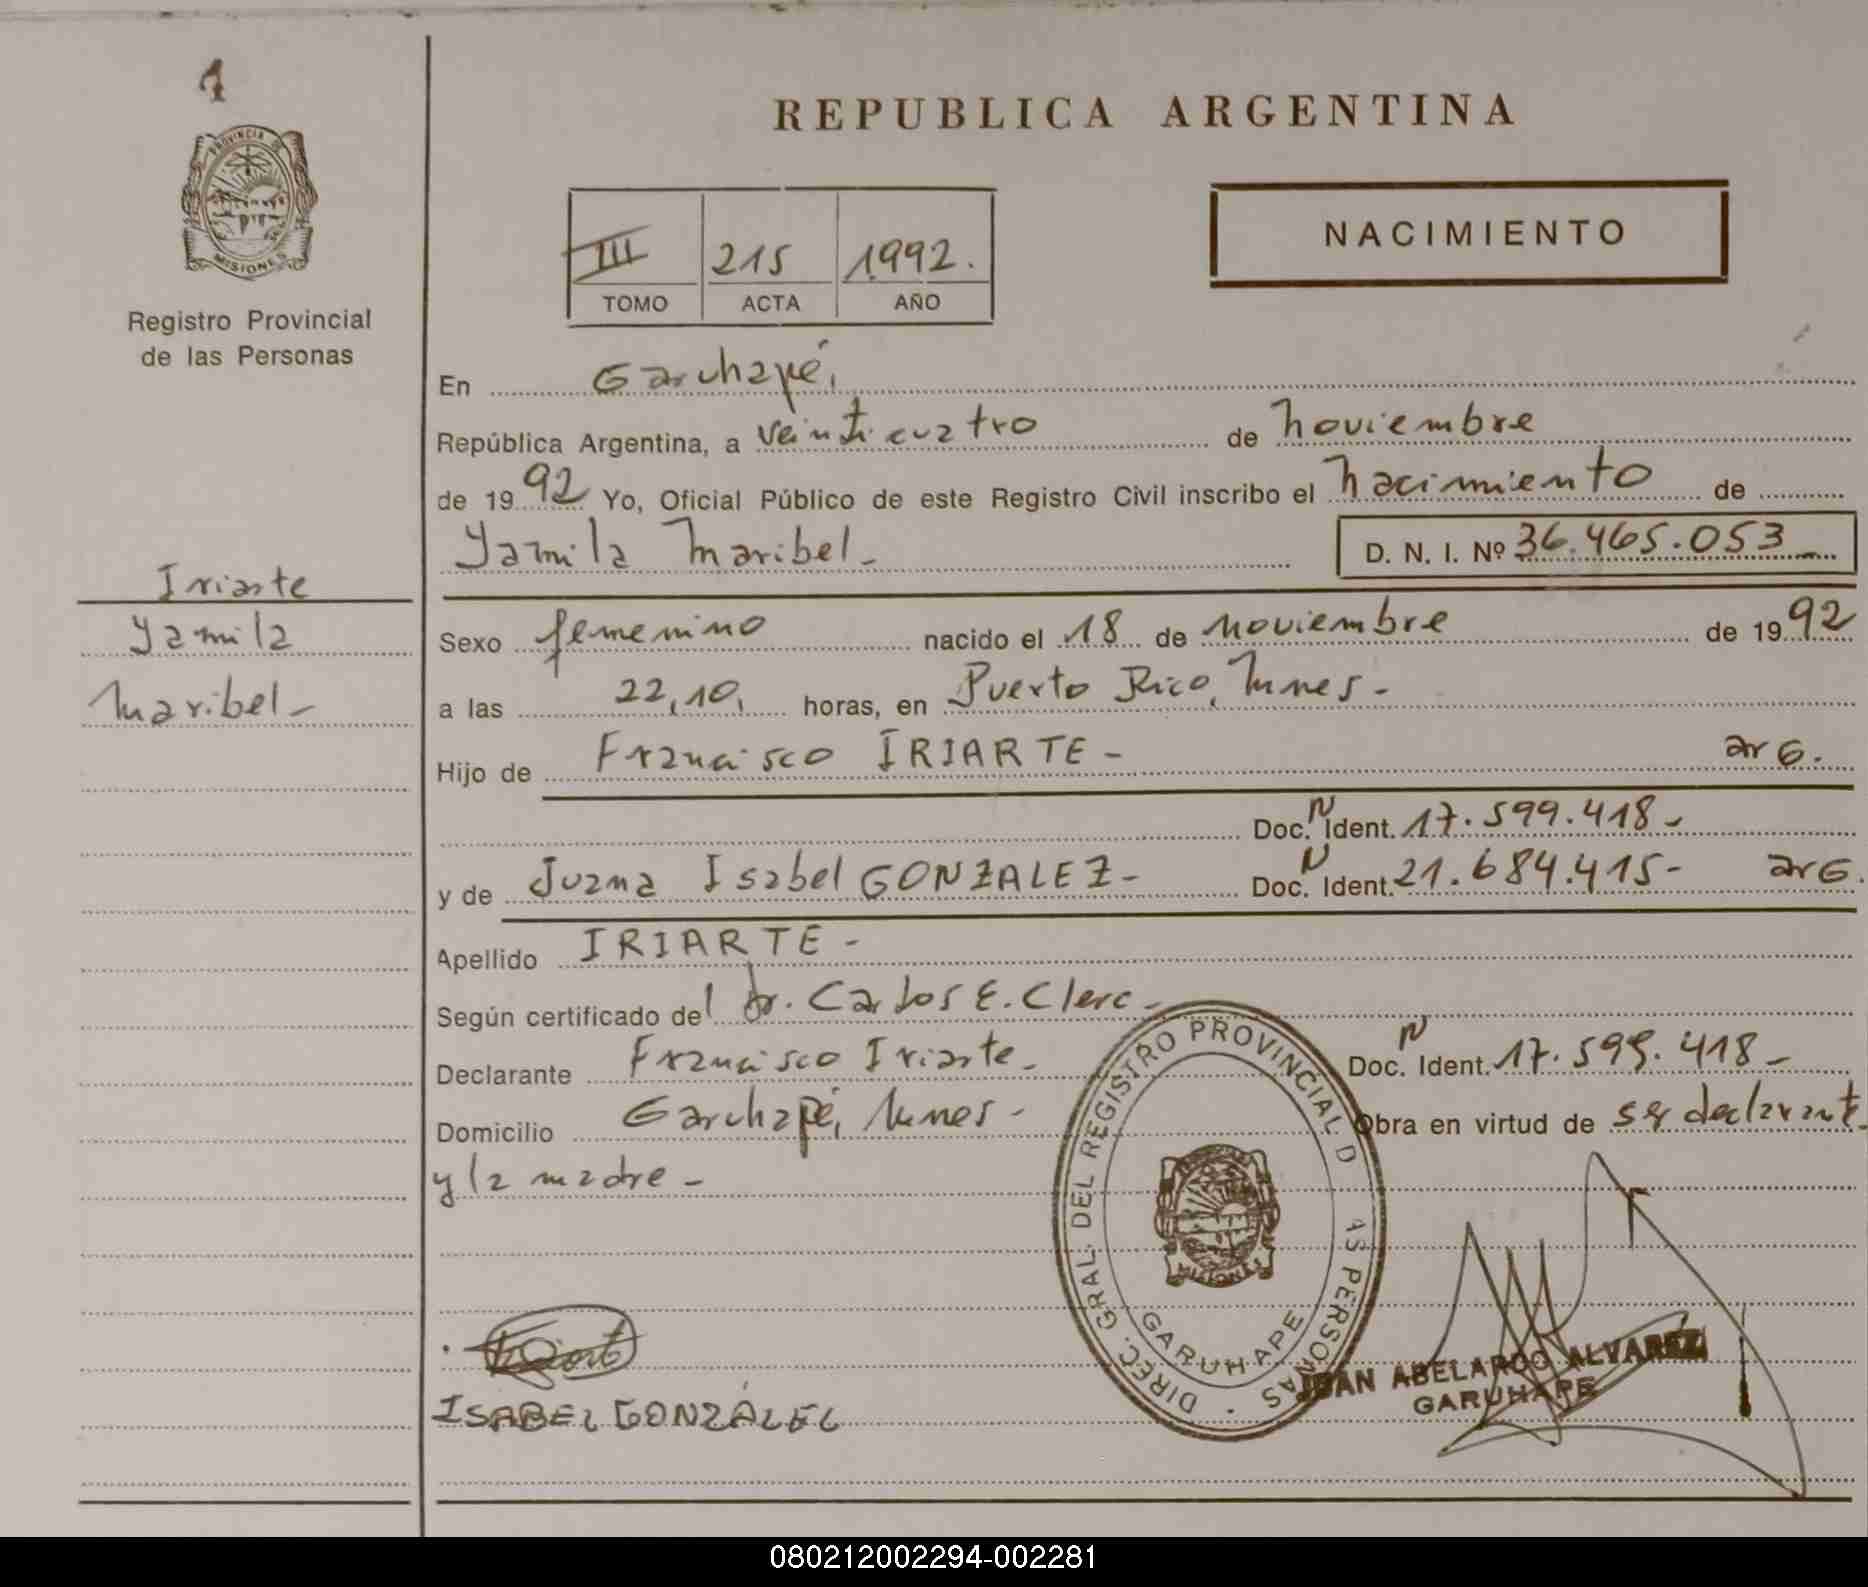 1
PROVINCIA DE
MISIONES
Registro Provincial
de las Personas
Iriarte
Yamila
Maribel -
REPUBLICA ARGENTINA
NACIMIENTO
III 215 1992.
TOMO ACTA AÑO
En Garuhapé,
República Argentina, a veinticuatro de noviembre
de 1992 Yo, Oficial Público de este Registro Civil inscribo el nacimiento de
Yamila Maribel - D. N. I. Nº 36.465.053
Sexo femenino nacido el 18 de noviembre de 1992
a las 22,10, horas, en Puerto Rico, Mnes -
Hijo de Francisco IRIARTE - arG.
Doc. N Ident. 17.599.418 -
y de Juana Isabel GONZALEZ - Doc. N Ident. 21.684.415 - arG.
Apellido IRIARTE -
Según certificado del dr. Carlos E. Clerc -
Declarante Francisco Iriarte - Doc. N Ident. 17.599.418 -
Domicilio Garuhapé, Mnes - Obra en virtud de ser declarante
y la madre -
DIREC. GRAL. DEL REGISTRO PROVINCIAL D AS PERSONAS
MISIONES
GARUHAPE
ISABEL GONZÁLEZ
JUAN ABELARDO ALVAREZ
GARUHAPE
080212002294-002281